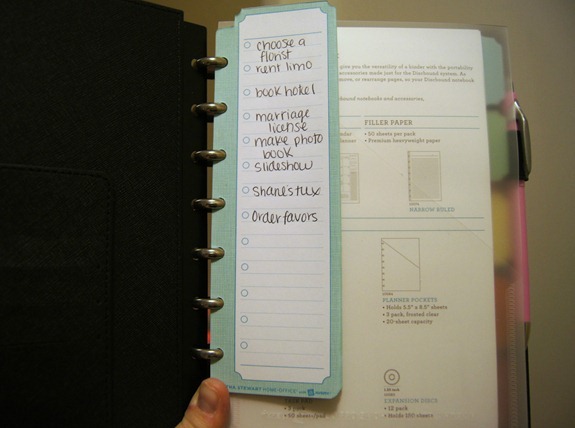 choose a
florist
rent limo
book hotel
marriage
license
make photo
book
slideshow
Shane's tux
Order favors
STEWART HOME OFFICE™ with
give you the versatility of a binder with the portability
accessories made just for the Discbound system. As
more, or rearrange pages, or your Discbound notebook
notebooks and accessories,
FILLER PAPER
• 50 sheets per pack
• Premium heavyweight paper
NARROW RULED
PLANNER POCKETS
• Holds 5.5" x 8.5" sheets
• 3 pack, frosted clear
• 20-sheet capacity
EXPANSION DISCS
• 3 pack
• 12 pack